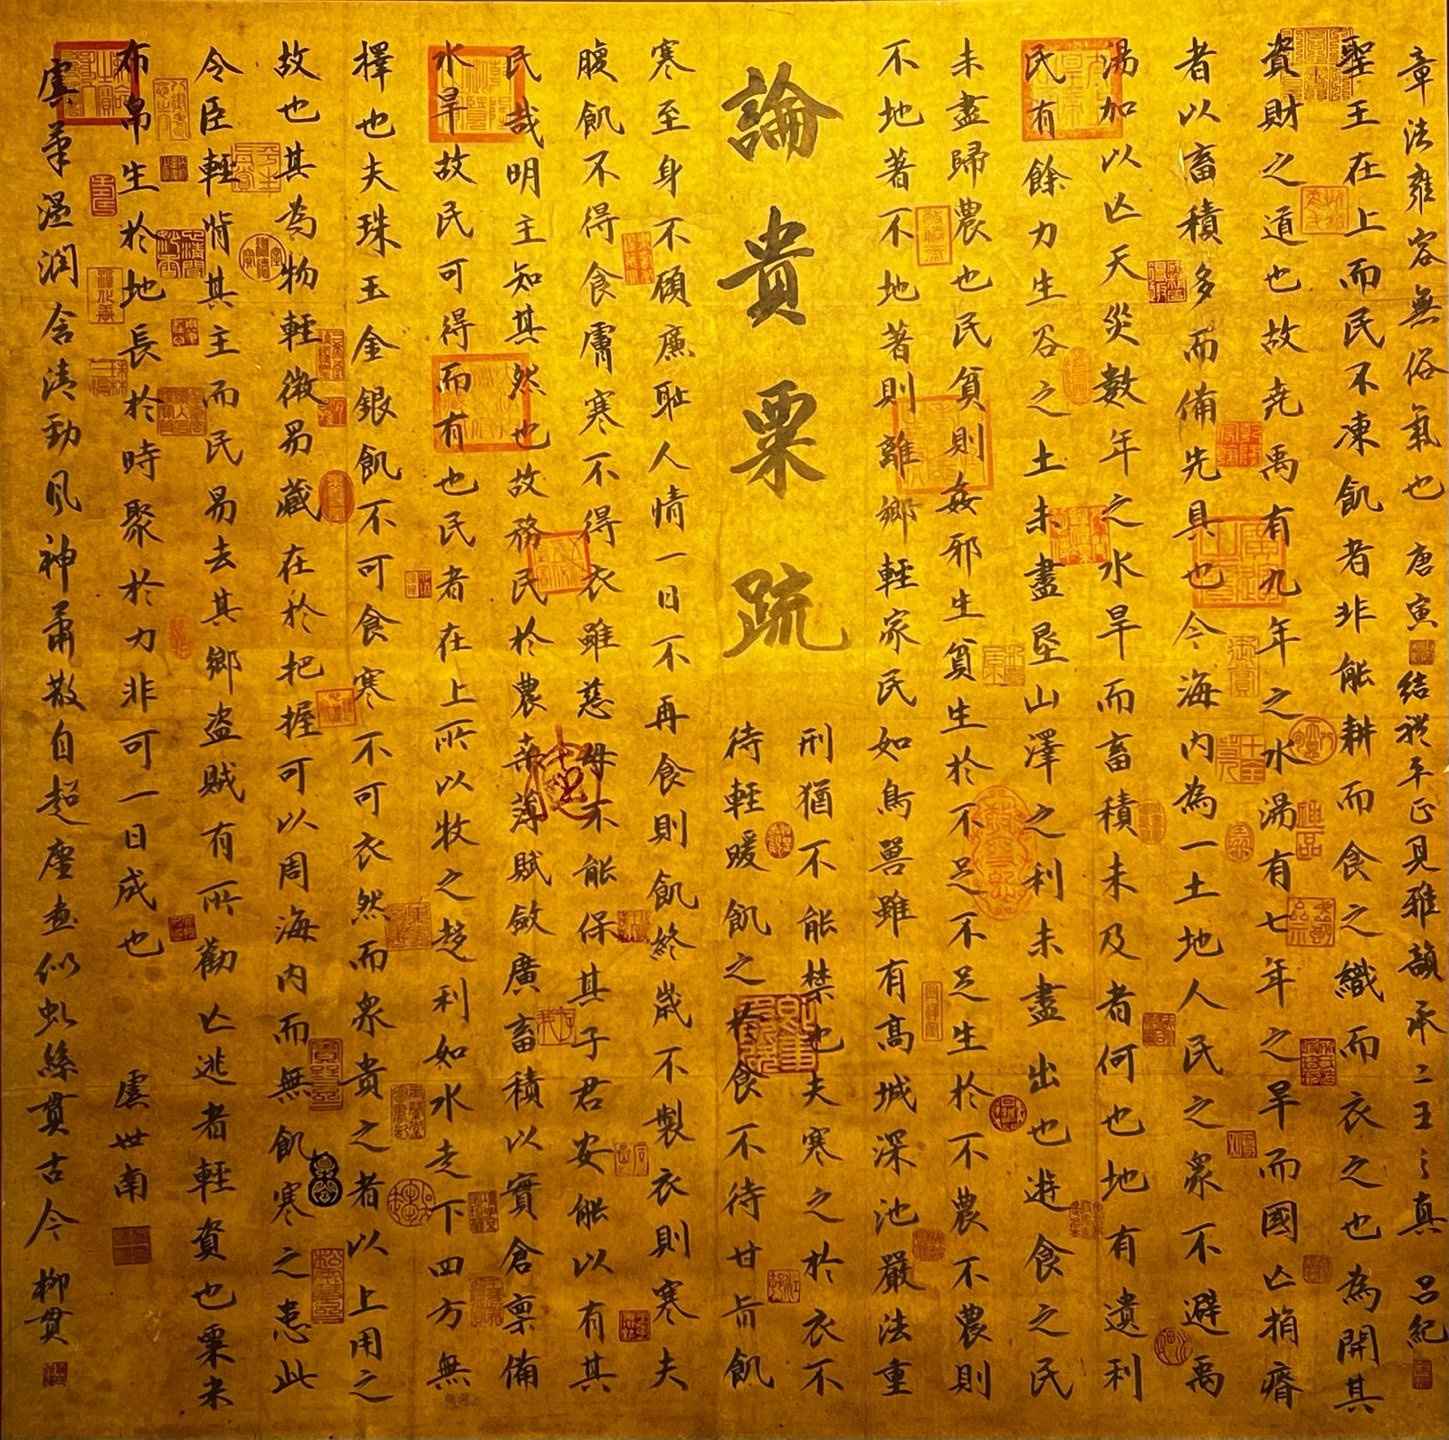 章法雍容無俗氣也 唐寅 結平正見雅韻承二王之真 呂紀
聖王在上而民不凍飢者非能耕而食之織而衣之也為開其
資財之道也故堯禹有九年之水湯有七年之旱而國亡捐瘠
者以畜積多而備先具也今海內為一土地人民之眾不避禹
湯加以亡天災數年之水旱而畜積未及者何也地有遺利
民有餘力生谷之土未盡垦山澤之利未盡出也遊食之民
未盡歸農也民貧則姦邪生貧生於不足不足生於不農不農則
不地著不地著則離鄉輕家民如鳥獸雖有高城深池嚴法重
論貴粟疏
刑猶不能禁也夫寒之於衣不
待輕暖飢之於食不待甘旨飢
寒至身不顧廉恥人情一日不再食則飢終歲不製衣則寒夫
腹飢不得食膚寒不得衣雖慈母不能保其子君安能以有其
民哉明主知其然也故務民於農桑薄賦斂廣畜積以實倉廩備
水旱故民可得而有也民者在上所以牧之趨利如水走下四方無
擇也夫珠玉金銀飢不可食寒不可衣然而眾貴之者以上用之
故也其為物輕微易藏在於把握可以周海內而無飢寒之患此
令臣輕背其主而民易去其鄉盜賊有所勸亡逃者輕資也粟米
布帛生於地長於時聚於力非可一日成也 虞世南
虞筆溫潤含清勁風神蕭散自超塵畫似虬絲貫古今 柳貫